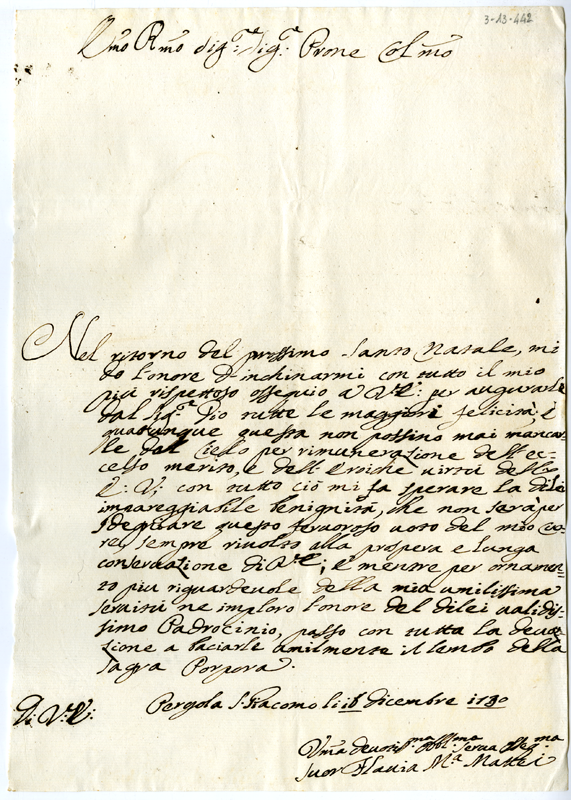 3-13-442
Emo Rmo Sig.re Sig.re Prone Colmo
Nel ritorno del prossimo Santo Natale, mi
do l'onore d'inchinarmi con tutto il mio
più rispettoso ossequio a V.E: per augurarle
dal Sig.re Dio tutte le maggiori felicità; è
quatunque questa non possino mai mancar-
le dal Cielo per rimunerazione dell'ec-
celso merito, e dell'Eroiche virtù dell'
E: V; con tutto ciò mi fa sperare la di lei
impareggiabile benignità, che non sarà per
sdegniare questo fervoroso voto del mio Cu-
re, sempre rivolto alla prospera e lunga
conservazione di V.E; è mentre per ornamen-
to più riguardevole della mia umilissima
servitù ne imploro l'onore del di lei validis-
simo Padrocinio, passo con tutta la devo-
zione a baciarle umilmente il lembo della
Sagra Porpora.
Di V.E: Pergola S. Giacomo li 16 dicembre 1730
Uma devotis.ma Obbl.ma Serva Osseq.ma
Suor Flavia M.a Mattei